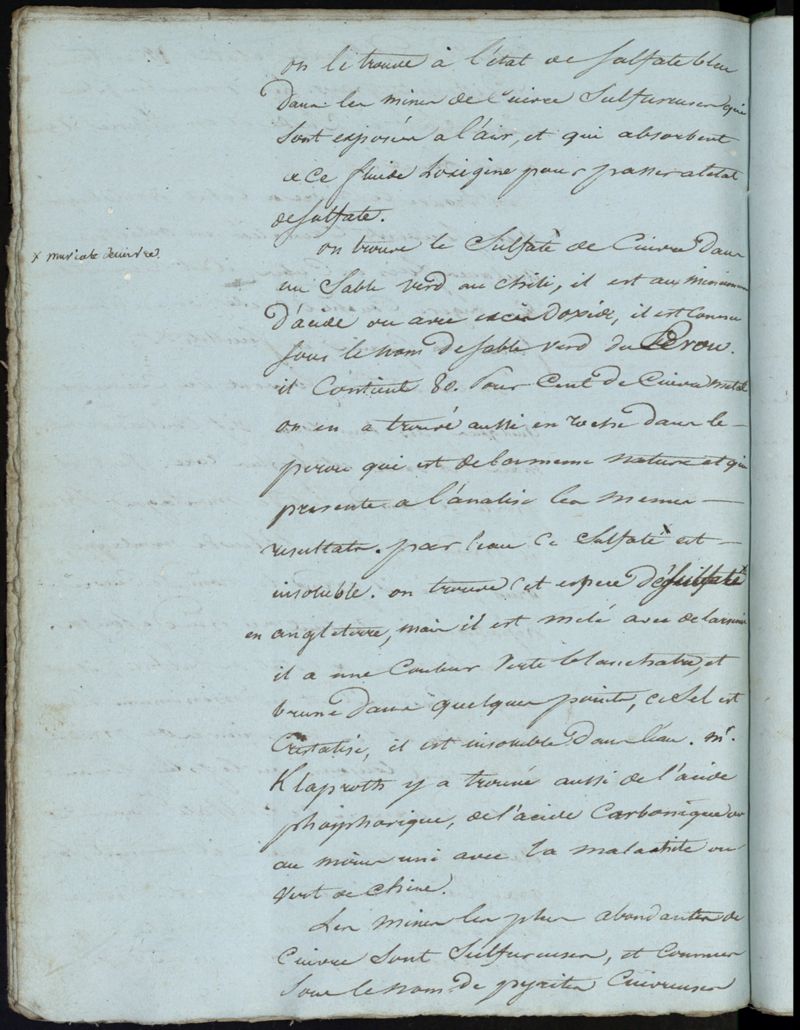 on le trouve à l'état de sulfate bleu
dans les mines de cuivre sulfureuses qui
sont exposées a l'air, et qui absorbent
a ce fluide l'oxigine pour passer a letat
de sulfate.
x muriate de cuivre
on trouve le sulfate de cuivre dans
un sable verd au chili, il est au minimum
d'acide ou avec excès doxide, il est connu
sous le nom de sable verd du Perou.
il contient 80. pour cent de cuivre metal
on en a trouvé aussi en roche dans le
perou qui est de la meme nature et qui
presente a l'analise les memes
resultats. par l'eau ce sulfate est
insoluble. on trouve cet espece de sulfate
en angleterre, mais il est melé avec de l'arsenic
il a une couleur verte blanchatre, et
brune dans quelques points, ce sel est
cristalisé, il est insoluble dans l'eau. mr.
Klaproth y a trouvé aussi de l'acide
phosphorique, de l'acide carbonique ou
au moins uni avec la malachite ou
vert de chine.
Les mines les plus abondantes de
cuivre sont sulfureuses, et connues
sous le nom de pyrites cuivreuses